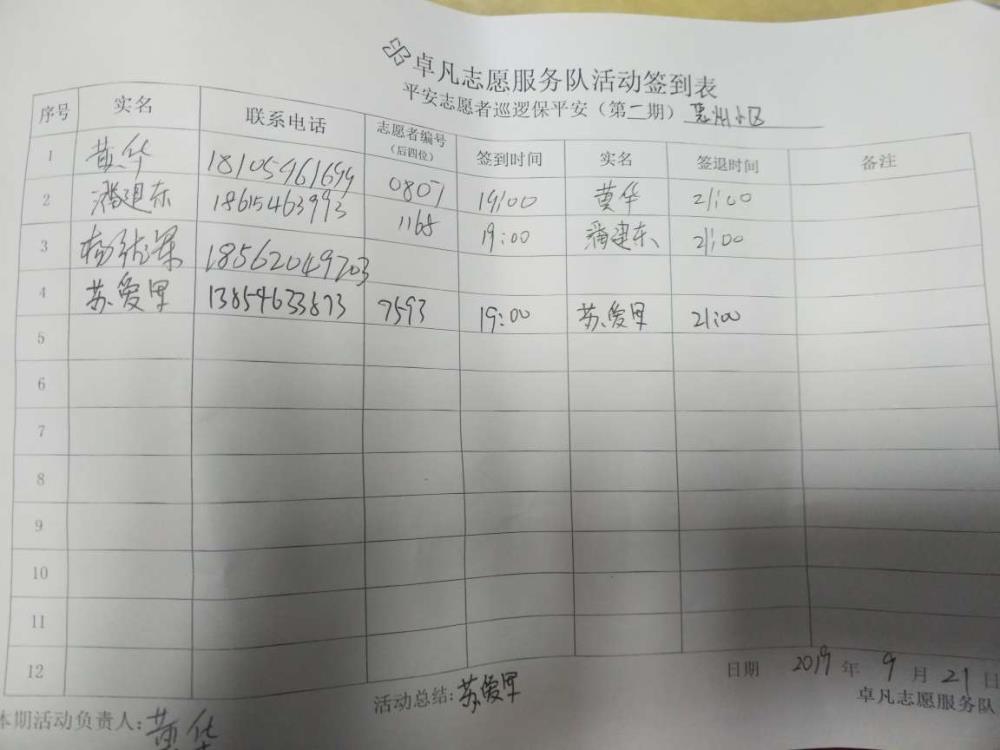 卓凡志愿服务队活动签到表
平安志愿者巡逻保平安（第二期）惠州小区
序号 实名 联系电话 志愿者编号（后四位） 签到时间 实名 签退时间 备注
1 黄华 18105461699 0807 19:00 黄华 21:00
2 潘建东 18615463993 1168 19:00 潘建东 21:00
3 18562049703
4 苏爱军 13854633873 7593 19:00 苏爱军 21:00
5
6
7
8
9
10
11
12
日期 2019年9月21日
本期活动负责人：黄华 活动总结：苏爱军 卓凡志愿服务队